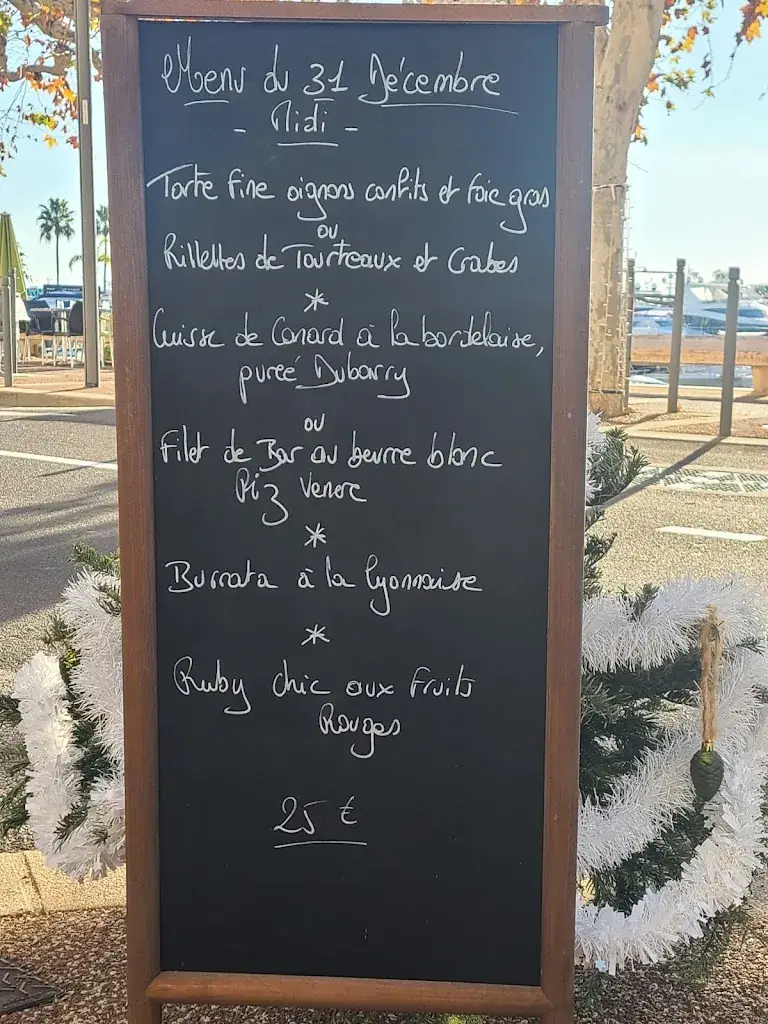 Menu du 31 Décembre
- Midi -
Tarte fine oignons confits et foie gras
ou
Rillettes de Tourteaux et Crabes
*
Cuisse de Canard à la bordelaise,
purée Dubarry
ou
Filet de Bar au beurre blanc
Riz Venere
*
Burrata à la lyonnaise
*
Ruby chic aux fruits
Rouges
25 €